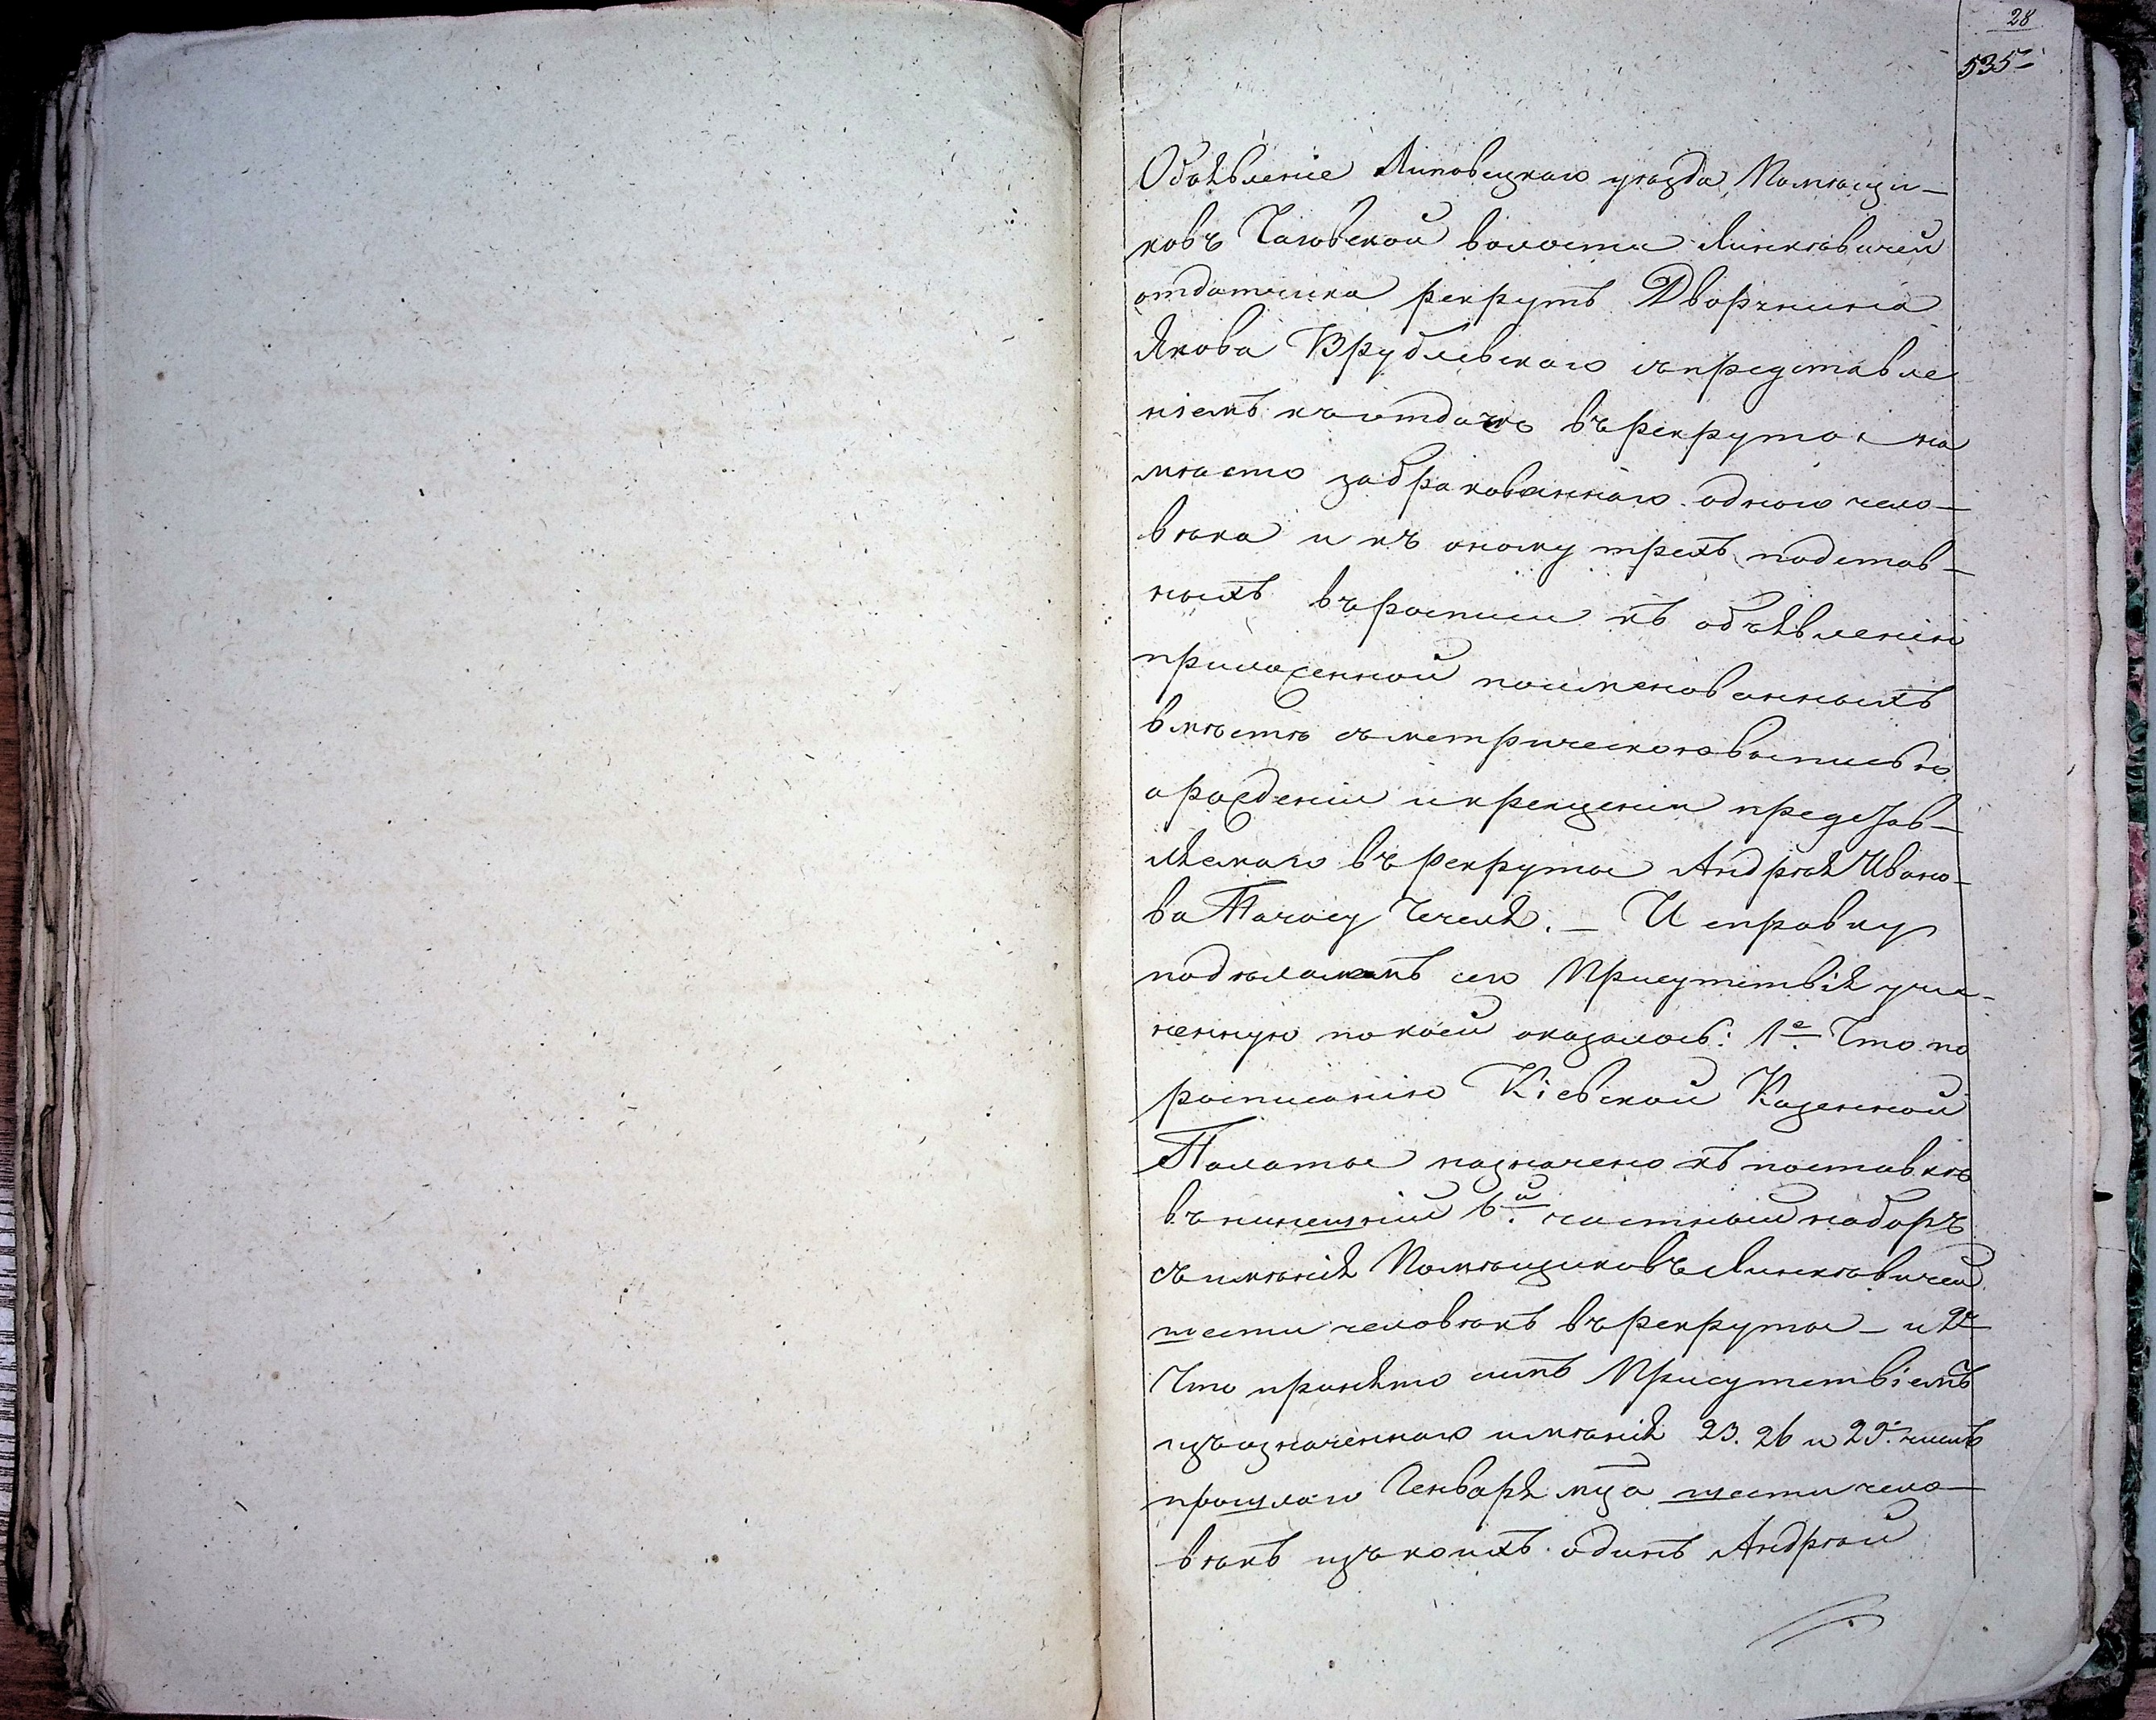 28
535
Объявленіе Липовецкаго уѣзда Помѣщи-
ковъ Чаговской волости Янишевичей
отдатчика рекрутъ Дворянина
Якова Врублевскаго съпредставле
ніемъ къотдачѣ върекруты на
мѣсто забракованнаго одного чело-
вѣка и къ оному трехъ подстав-
ныхъ въросписи къ объявленію
приложенной поименованныхъ
вмѣстѣ съметрическоювыписью
орожденіи икрещеніи представ-
ляемаго върекруты Андрѣя Ивано-
ва . И справку
подѣламъ сего Присутствія учи-
ненную покоей оказалось: 1е. Что по
росписанію Кіевской Казенной
Палаты назначено къ поставкѣ
вънинешній 6й. частный наборъ
съимѣнія Помѣщиковъ
шести человѣкъ върекруты - и 2е
Что принято симъ Присутствіемъ
изъозначеннаго имѣнія 23. 26 и 29. числъ
прошлаго Генваря мца шести чело-
вѣкъ изъкоихъ одинъ Андрѣй